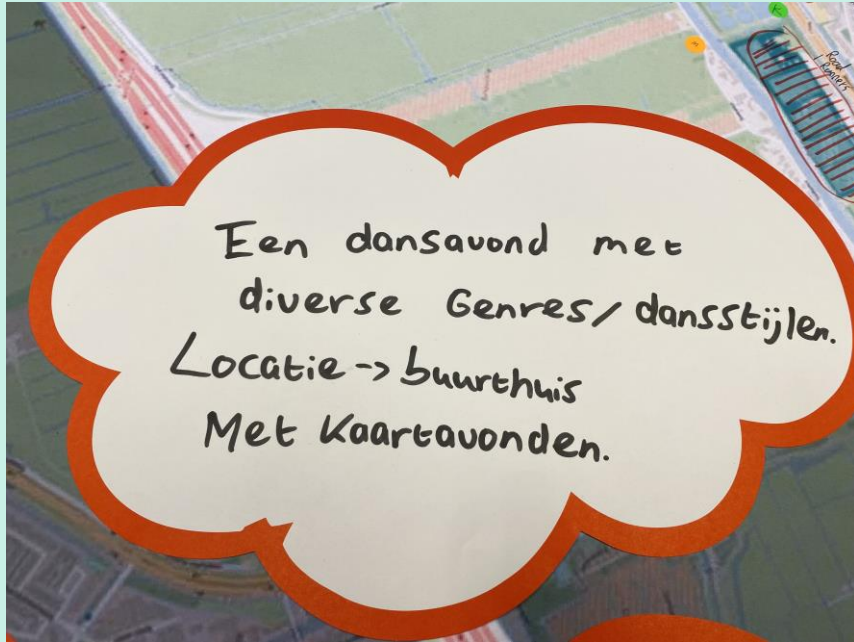 Een dansavond met
diverse Genres/ dansstijlen.
Locatie -> buurthuis
Met Kaartavonden.